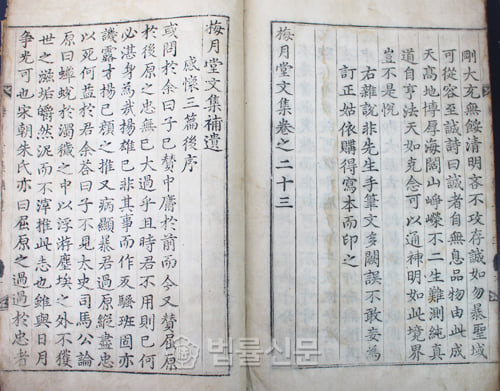 剛大充無餒清明客不攻存誠如勿暴聖域
可從容至誠詩曰誠者自無息品物由此成
天高地博厚海闊山崢嶸不二生難測純眞
道自亨法天如克念可以通神明如此境界
豈不是悅
右雜說非先生手筆文多闕誤不敢妄爲
訂正姑依購得寫本而印之
梅月堂文集卷之二十三
梅月堂文集補遺
感懷三篇後序
或問於余曰子已贊中庸於前而今又贊屈原
於後原之忠無已大過乎且時君不用則已何
必湛身爲哉揚雄已非其事而作反騷班固亦
譏露才揚已頹之推又病顯暴君過原縱盡忠
以死何益於君余荅曰子不見太史司馬公論
原曰蟬蛻於濁穢之中以浮游塵埃之外不獲
世之滋垢皭然泥而不滓推此志也雖與日月
爭光可也宋朝朱氏亦曰屈原之過過於忠者
법률신문